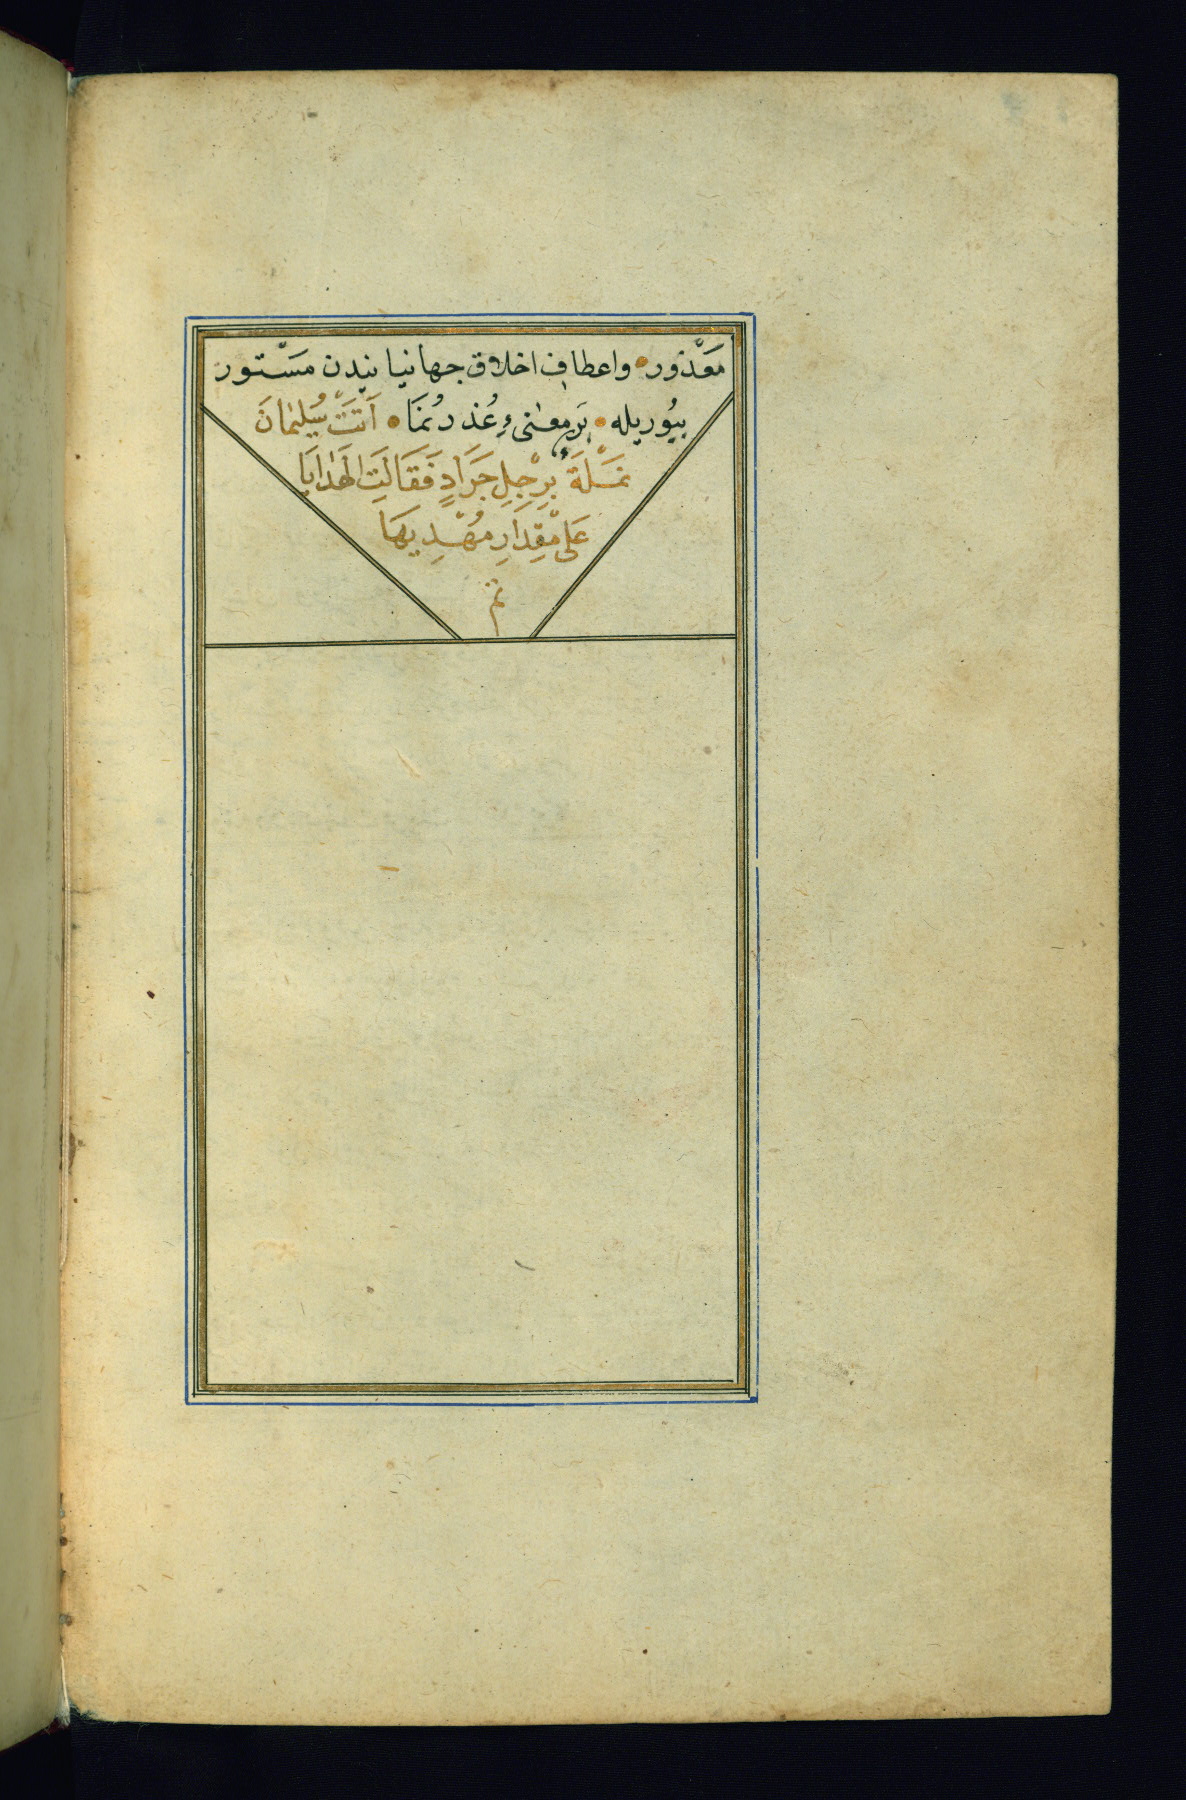 مَعْذُور واعطاف اخلاق جهانيانيدن مَسْتور
بيُوريله بَرمعنىءِ عُذر نُمَا اَتَتْ سُلَيْمانَ
نَمْلَةٌ بِرِجْلِ جَرَادٍ فَقَالَتِ الْهَدَايَا
عَلَى مِقْدَارِ مُهْدِيهَا
تم